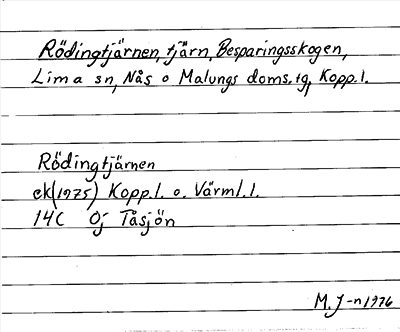 Rödingtjärnen, tjärn, Besparingsskogen,
Lima sn, Nås o Malungs doms.tg, Kopp.l.
Rödingtjärnen
ek(1975) Kopp.l. o. Värml.l.
14C Oj Tåsjön
M.J-n 1976